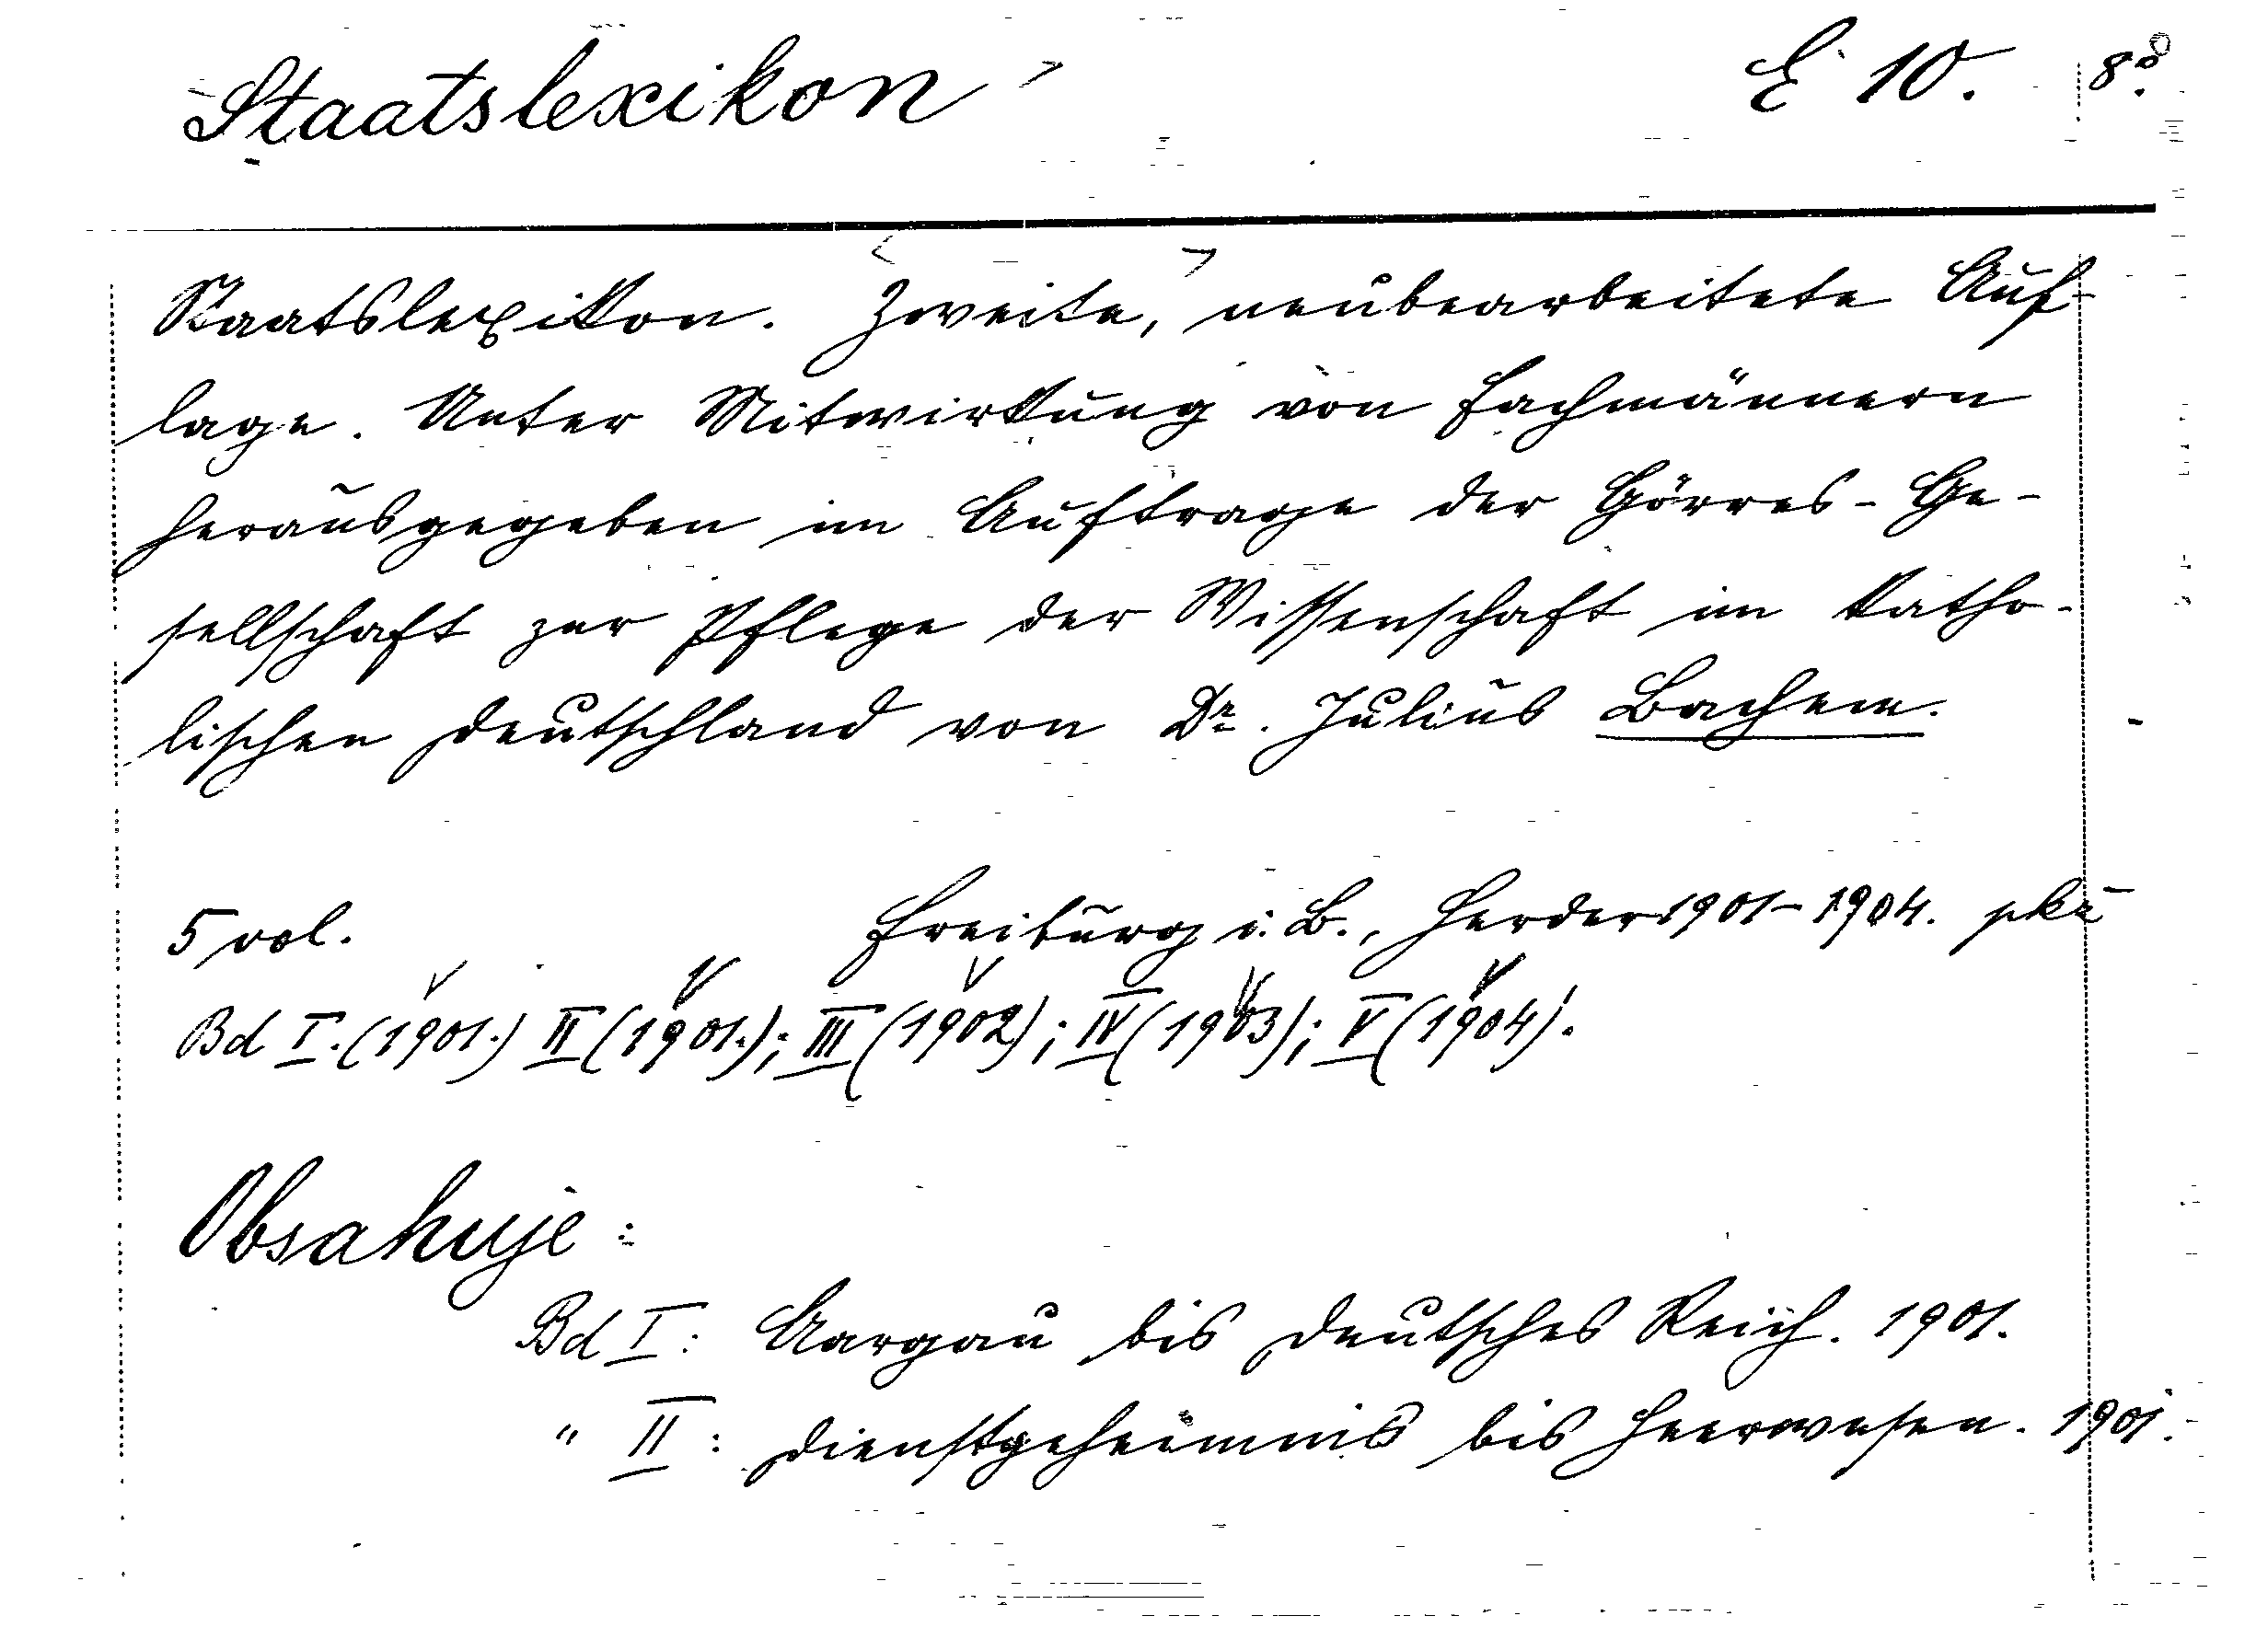 Staatslexikon E 10. 8°.
Staatslexikon. Zweite, neubearbeitete Auf-
lage. Unter Mitwirkung von Fachmännern
herausgegeben im Auftrage der Görres-Ge-
sellschaft zur Pflege der Wissenschaft im katho-
lischen Deutschland von Dr. Julius Bachem.
5 vol. Freiburg i. B., Herder 1901-1904.
Bd I. (1901.) II (1901.); III (1902); IV (1903); V (1904).
Obsahuje:
Bd I: Aargau bis Deutsches Reich. 1901.
" II: Dienstgeheimnis bis Heerwesen. 1901.